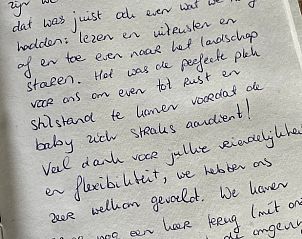 zijn we
dat was juist ook even wat we n
hadden: lezen en uitrusten en
af en toe even naar het landschap
staren. Het was de perfecte plek
voor ons om even tot rust en
stilstand te komen voordat de
baby zich straks aandient!
Veel dank voor jullie vriendelijkhei
en flexibiliteit, we hebben ons
zeer welkom gevoeld. We komen
nog een keer terug (met on
omgev